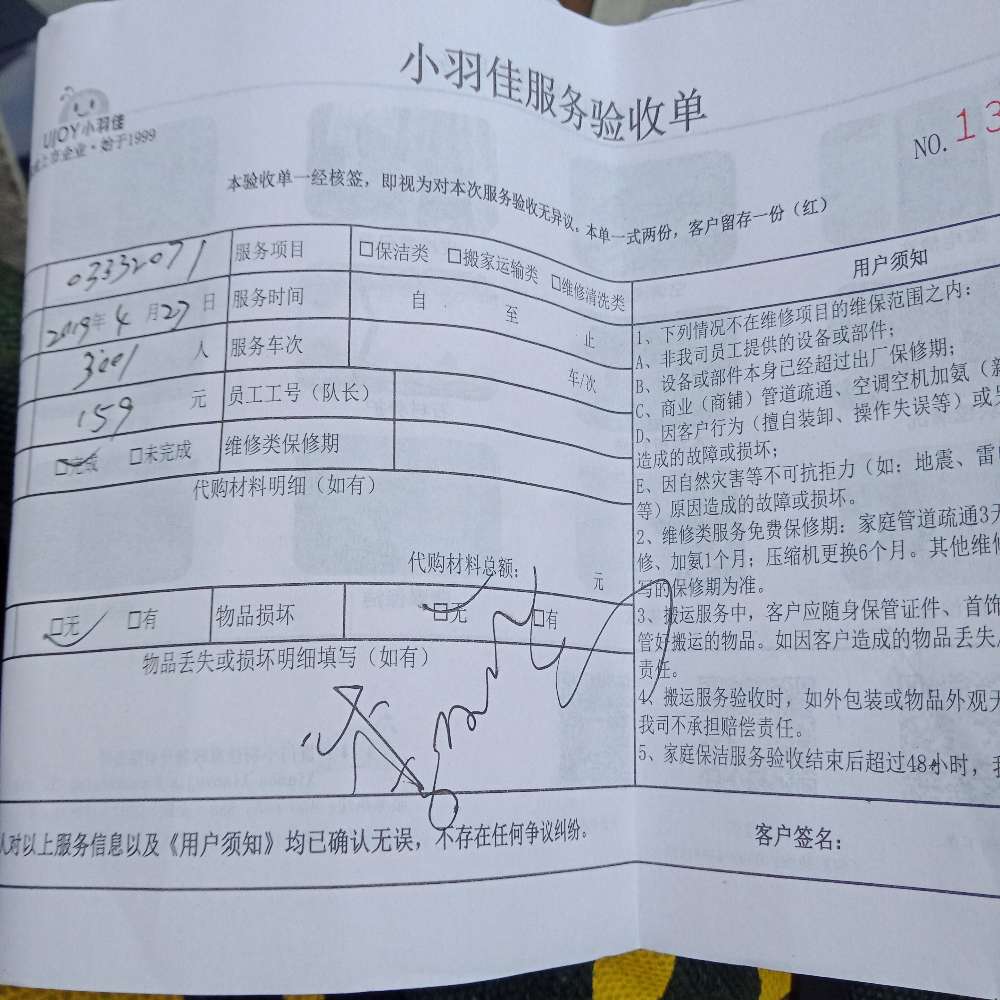 小羽佳服务验收单
UJOY小羽佳
上市企业·始于1999
NO.13
本验收单一经核签，即视为对本次服务验收无异议。本单一式两份，客户留存一份（红）
03332071 服务项目 □保洁类 □搬家运输类 □维修清洗类
2019年4月27日 服务时间 自 至 止
人 服务车次 车/次
159 元 员工工号（队长）
□完成 □未完成 维修类保修期
代购材料明细（如有）
代购材料总额： 元
□无 □有 物品损坏 □无 □有
物品丢失或损坏明细填写（如有）
对以上服务信息以及《用户须知》均已确认无误，不存在任何争议纠纷。
用户须知
1、下列情况不在维修项目的维保范围之内：
A、非我司员工提供的设备或部件；
B、设备或部件本身已经超过出厂保修期；
C、商业（商铺）管道疏通、空调空机加氨（
D、因客户行为（擅自装卸、操作失误等）或
造成的故障或损坏；
E、因自然灾害等不可抗拒力（如：地震、雷
等）原因造成的故障或损坏。
2、维修类服务免费保修期：家庭管道疏通3天
修、加氨1个月；压缩机更换6个月。其他维
写的保修期为准。
3、搬运服务中，客户应随身保管证件、首饰
管好搬运的物品。如因客户造成的物品丢失
责任。
4、搬运服务验收时，如外包装或物品外观
我司不承担赔偿责任。
5、家庭保洁服务验收结束后超过48小时，
客户签名：